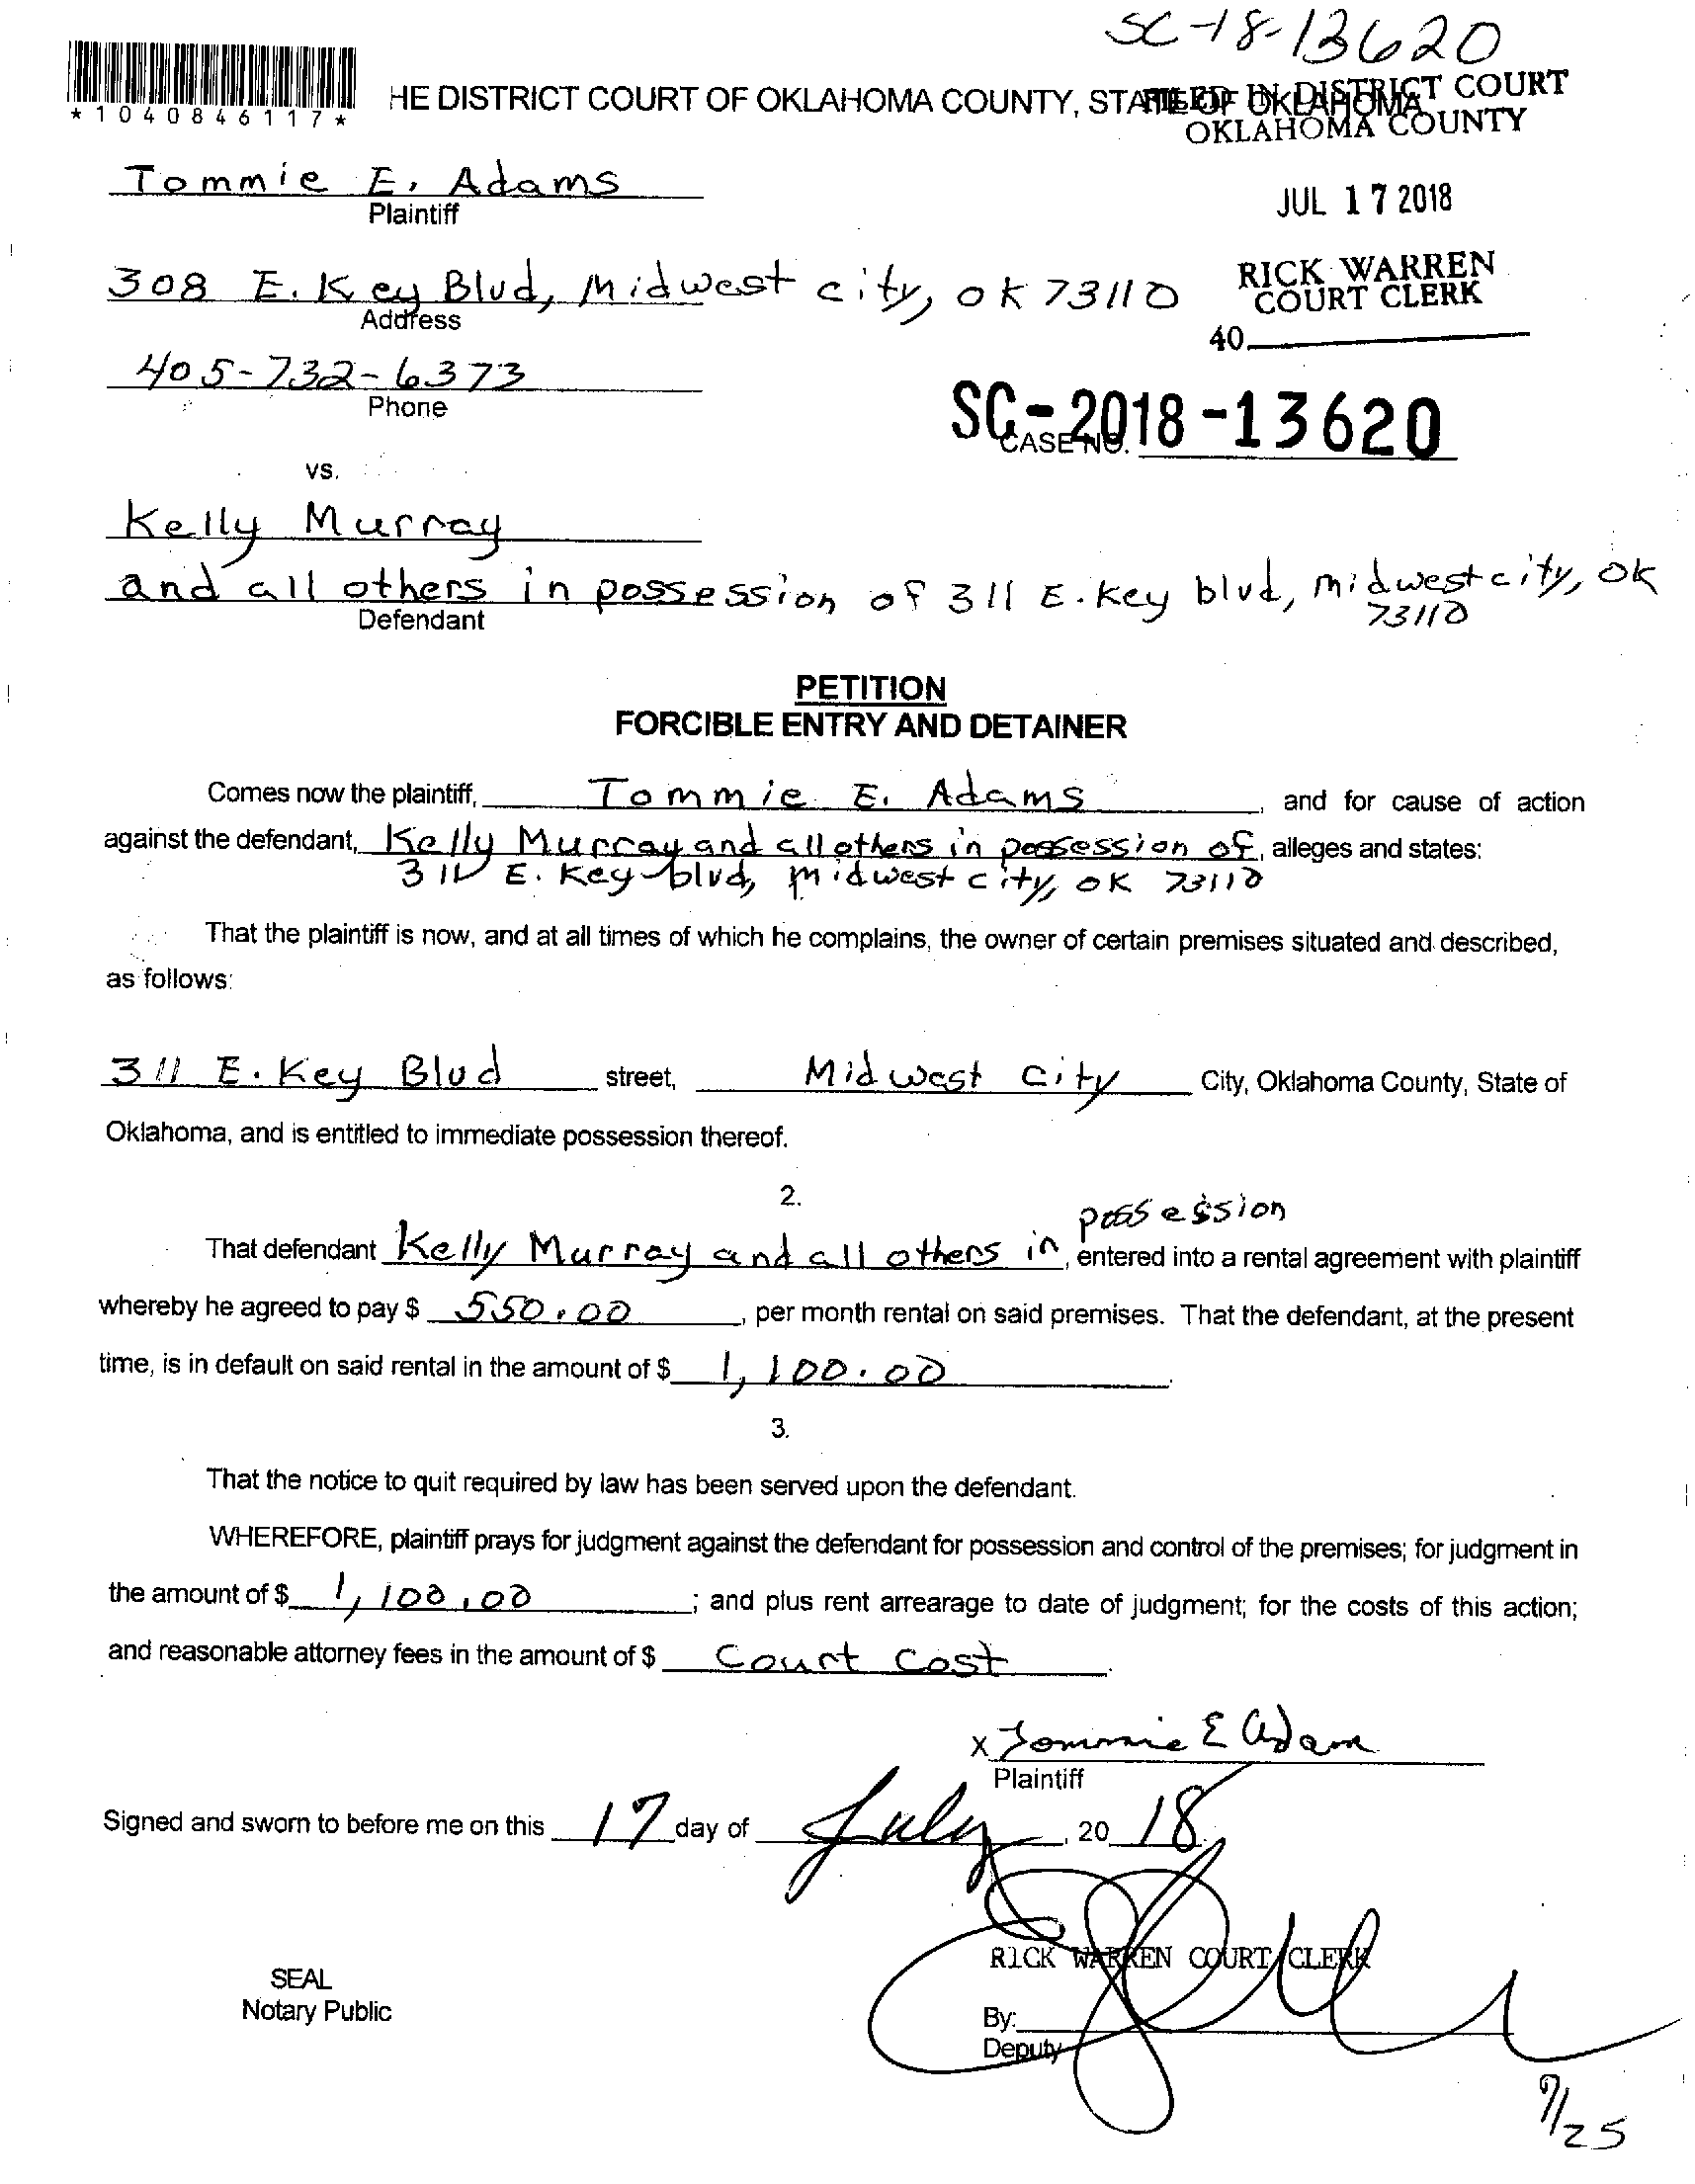 SC-18-13620
*1040846117*
HE DISTRICT COURT OF OKLAHOMA COUNTY, STATE OF OKLAHOMA
FILED IN DISTRICT COURT
OKLAHOMA COUNTY
Tommie E. Adams
Plaintiff
JUL 17 2018
308 E. Key Blvd, Midwest city, OK 73110
Address
RICK WARREN
COURT CLERK
40
405-732-6373
Phone
SC-2018-13620
CASE NO.
vs.
Kelly Murray
and all others in possession of 311 E. Key blvd, midwest city, OK
73110
Defendant
PETITION
FORCIBLE ENTRY AND DETAINER
Comes now the plaintiff, Tommie E. Adams, and for cause of action
against the defendant, Kelly Murray and all others in possession of, alleges and states:
311 E. Key blvd, midwest city, OK 73110
That the plaintiff is now, and at all times of which he complains, the owner of certain premises situated and described,
as follows:
311 E. Key Blvd street, Midwest city City, Oklahoma County, State of
Oklahoma, and is entitled to immediate possession thereof.
2.
possession
That defendant Kelly Murray and all others in, entered into a rental agreement with plaintiff
whereby he agreed to pay $ 550.00, per month rental on said premises. That the defendant, at the present
time, is in default on said rental in the amount of $ 1,100.00.
3.
That the notice to quit required by law has been served upon the defendant.
WHEREFORE, plaintiff prays for judgment against the defendant for possession and control of the premises; for judgment in
the amount of $ 1,100.00; and plus rent arrearage to date of judgment; for the costs of this action;
and reasonable attorney fees in the amount of $ Court Cost.
x Tommie E Adam
Plaintiff
Signed and sworn to before me on this 17 day of July, 20 18.
RICK WARREN COURT CLERK
SEAL
Notary Public
By:
Deputy
7/25